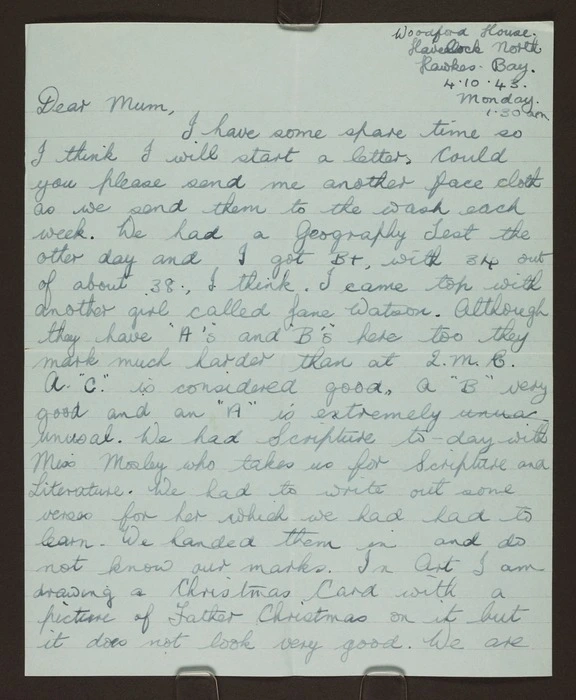 Woodford House.
Havelock North
Hawkes. Bay.
4.10.43.
Monday.
1.30 am.
Dear Mum,
I have some spare time so
I think I will start a letter. Could
you please send me another face cloth
as we send them to the wash each
week. We had a Geography Test the
other day and I got B+, with 34 out
of about 38., I think. I came top with
another girl called Jane Watson. Although
they have "A"s and "B"s here too they
mark much harder than at Q.M.C.
A "C" is considered good, a "B" very
good and an "A" is extremely unua
unusal. We had Scripture to-day with
Miss Mosley who takes us for Scripture and
Literature. We had to write out some
verses for her which we had had to
learn. We handed them in and do
not know our marks. In Art I am
drawing a Christmas Card with a
picture of Father Christmas on it but
it does not look very good. We are